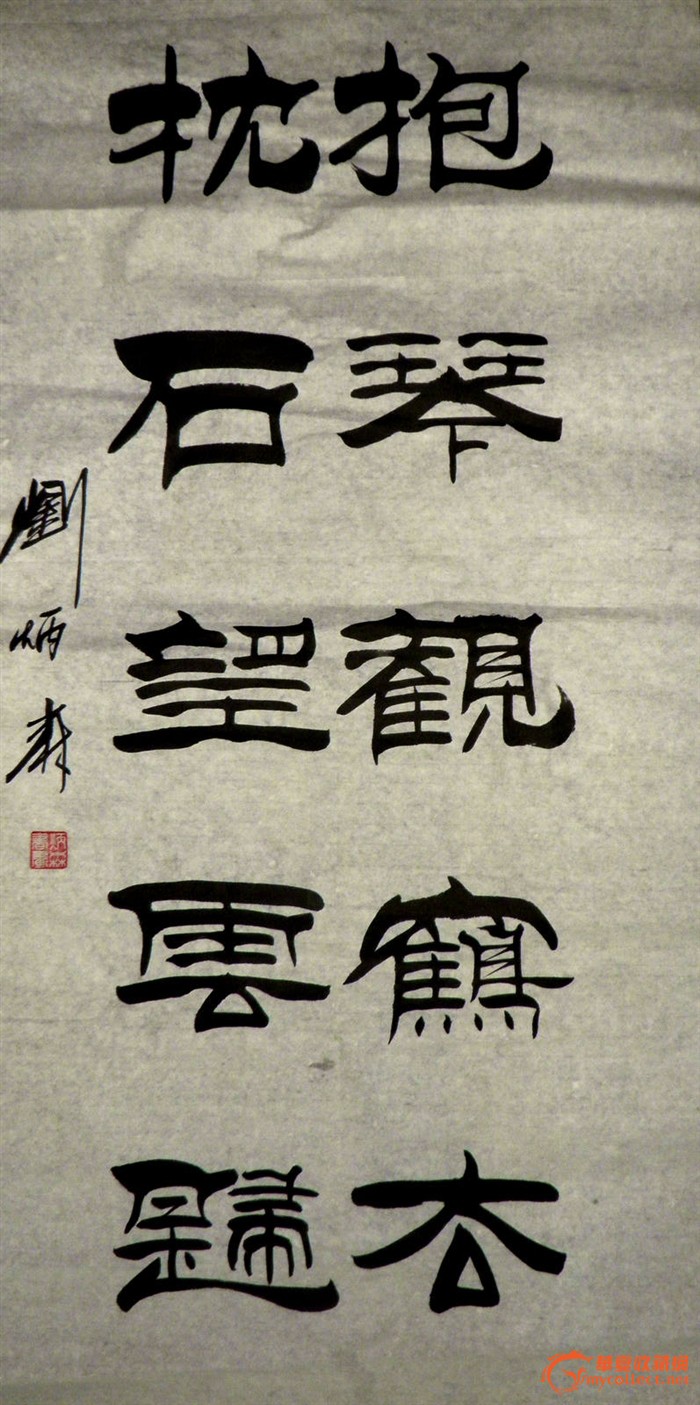 抱琴觀鶴去
枕石望雲歸
劉炳森